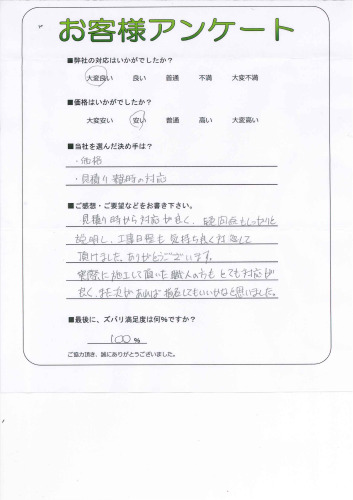 お客様アンケート
■弊社の対応はいかがでしたか？
大変良い 良い 普通 不満 大変不満
■価格はいかがでしたか？
大変安い 安い 普通 高い 大変高い
■当社を選んだ決め手は？
・価格
・見積り 時の対応
■ご感想・ご要望などをお書き下さい。
見積り時から対応が良く、 もしっかりと
説明し、工事日程も気持ち良く対応して
頂けました。ありがとうございます。
実際に施工して頂いた職人の方も とても対応が
良く、また次があれば指名してもいいかなと思いました。
■最後に、ズバリ満足度は何％ですか？
100 %
ご協力頂き、誠にありがとうございました。